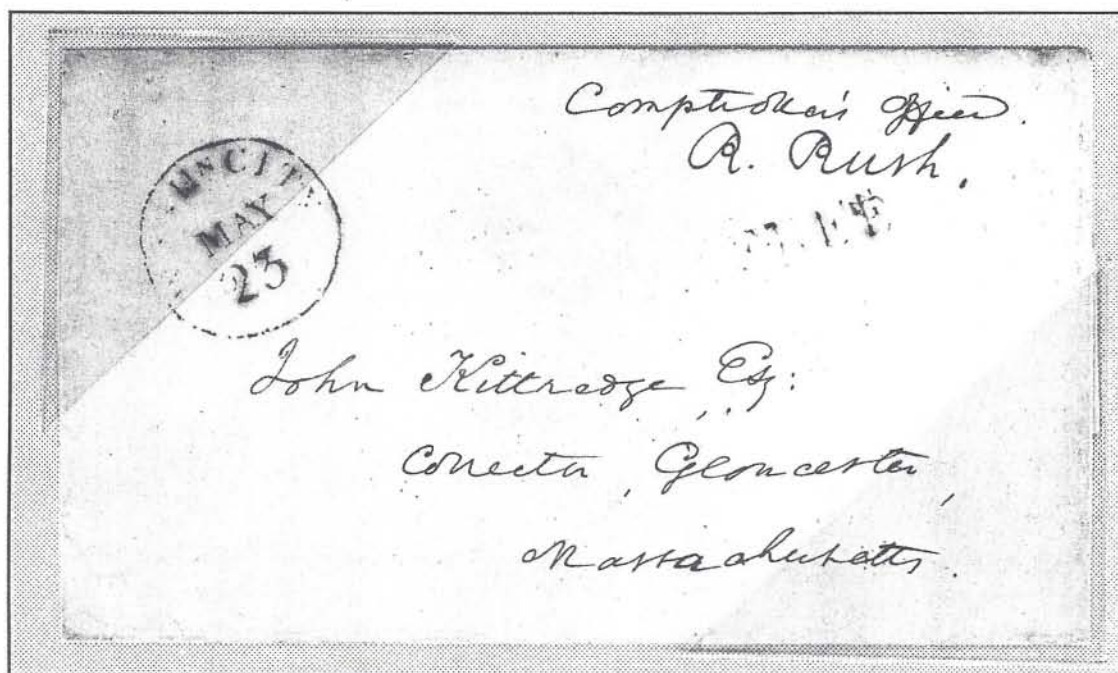 Comptroller's Office.
R. Rush.
CITY
MAY
23
John Kittredge Esq:
Collector, Gloucester,
Massachusetts.